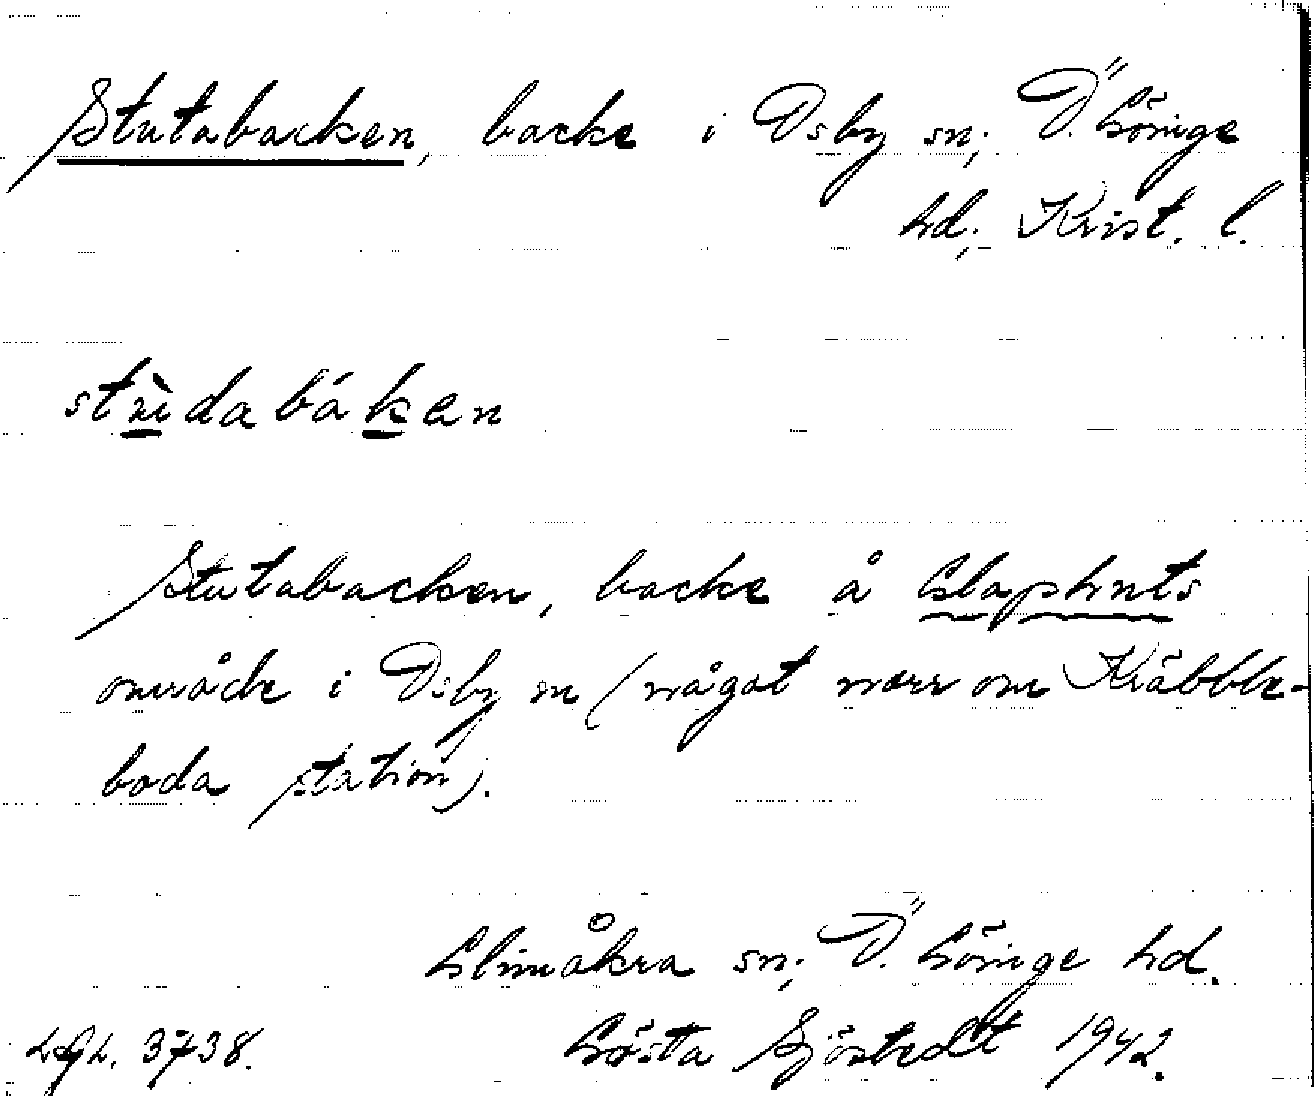 Stutabacken, backe i Osby sn; Ö. Göinge
hd; Krist. l.
Stutabacken, backe å Glaphults
område i Osby sn (något norr om Kräbble-
boda station).
Glimåkra sn; Ö. Göinge hd.
3738. Gösta Sjöstedt 1942.